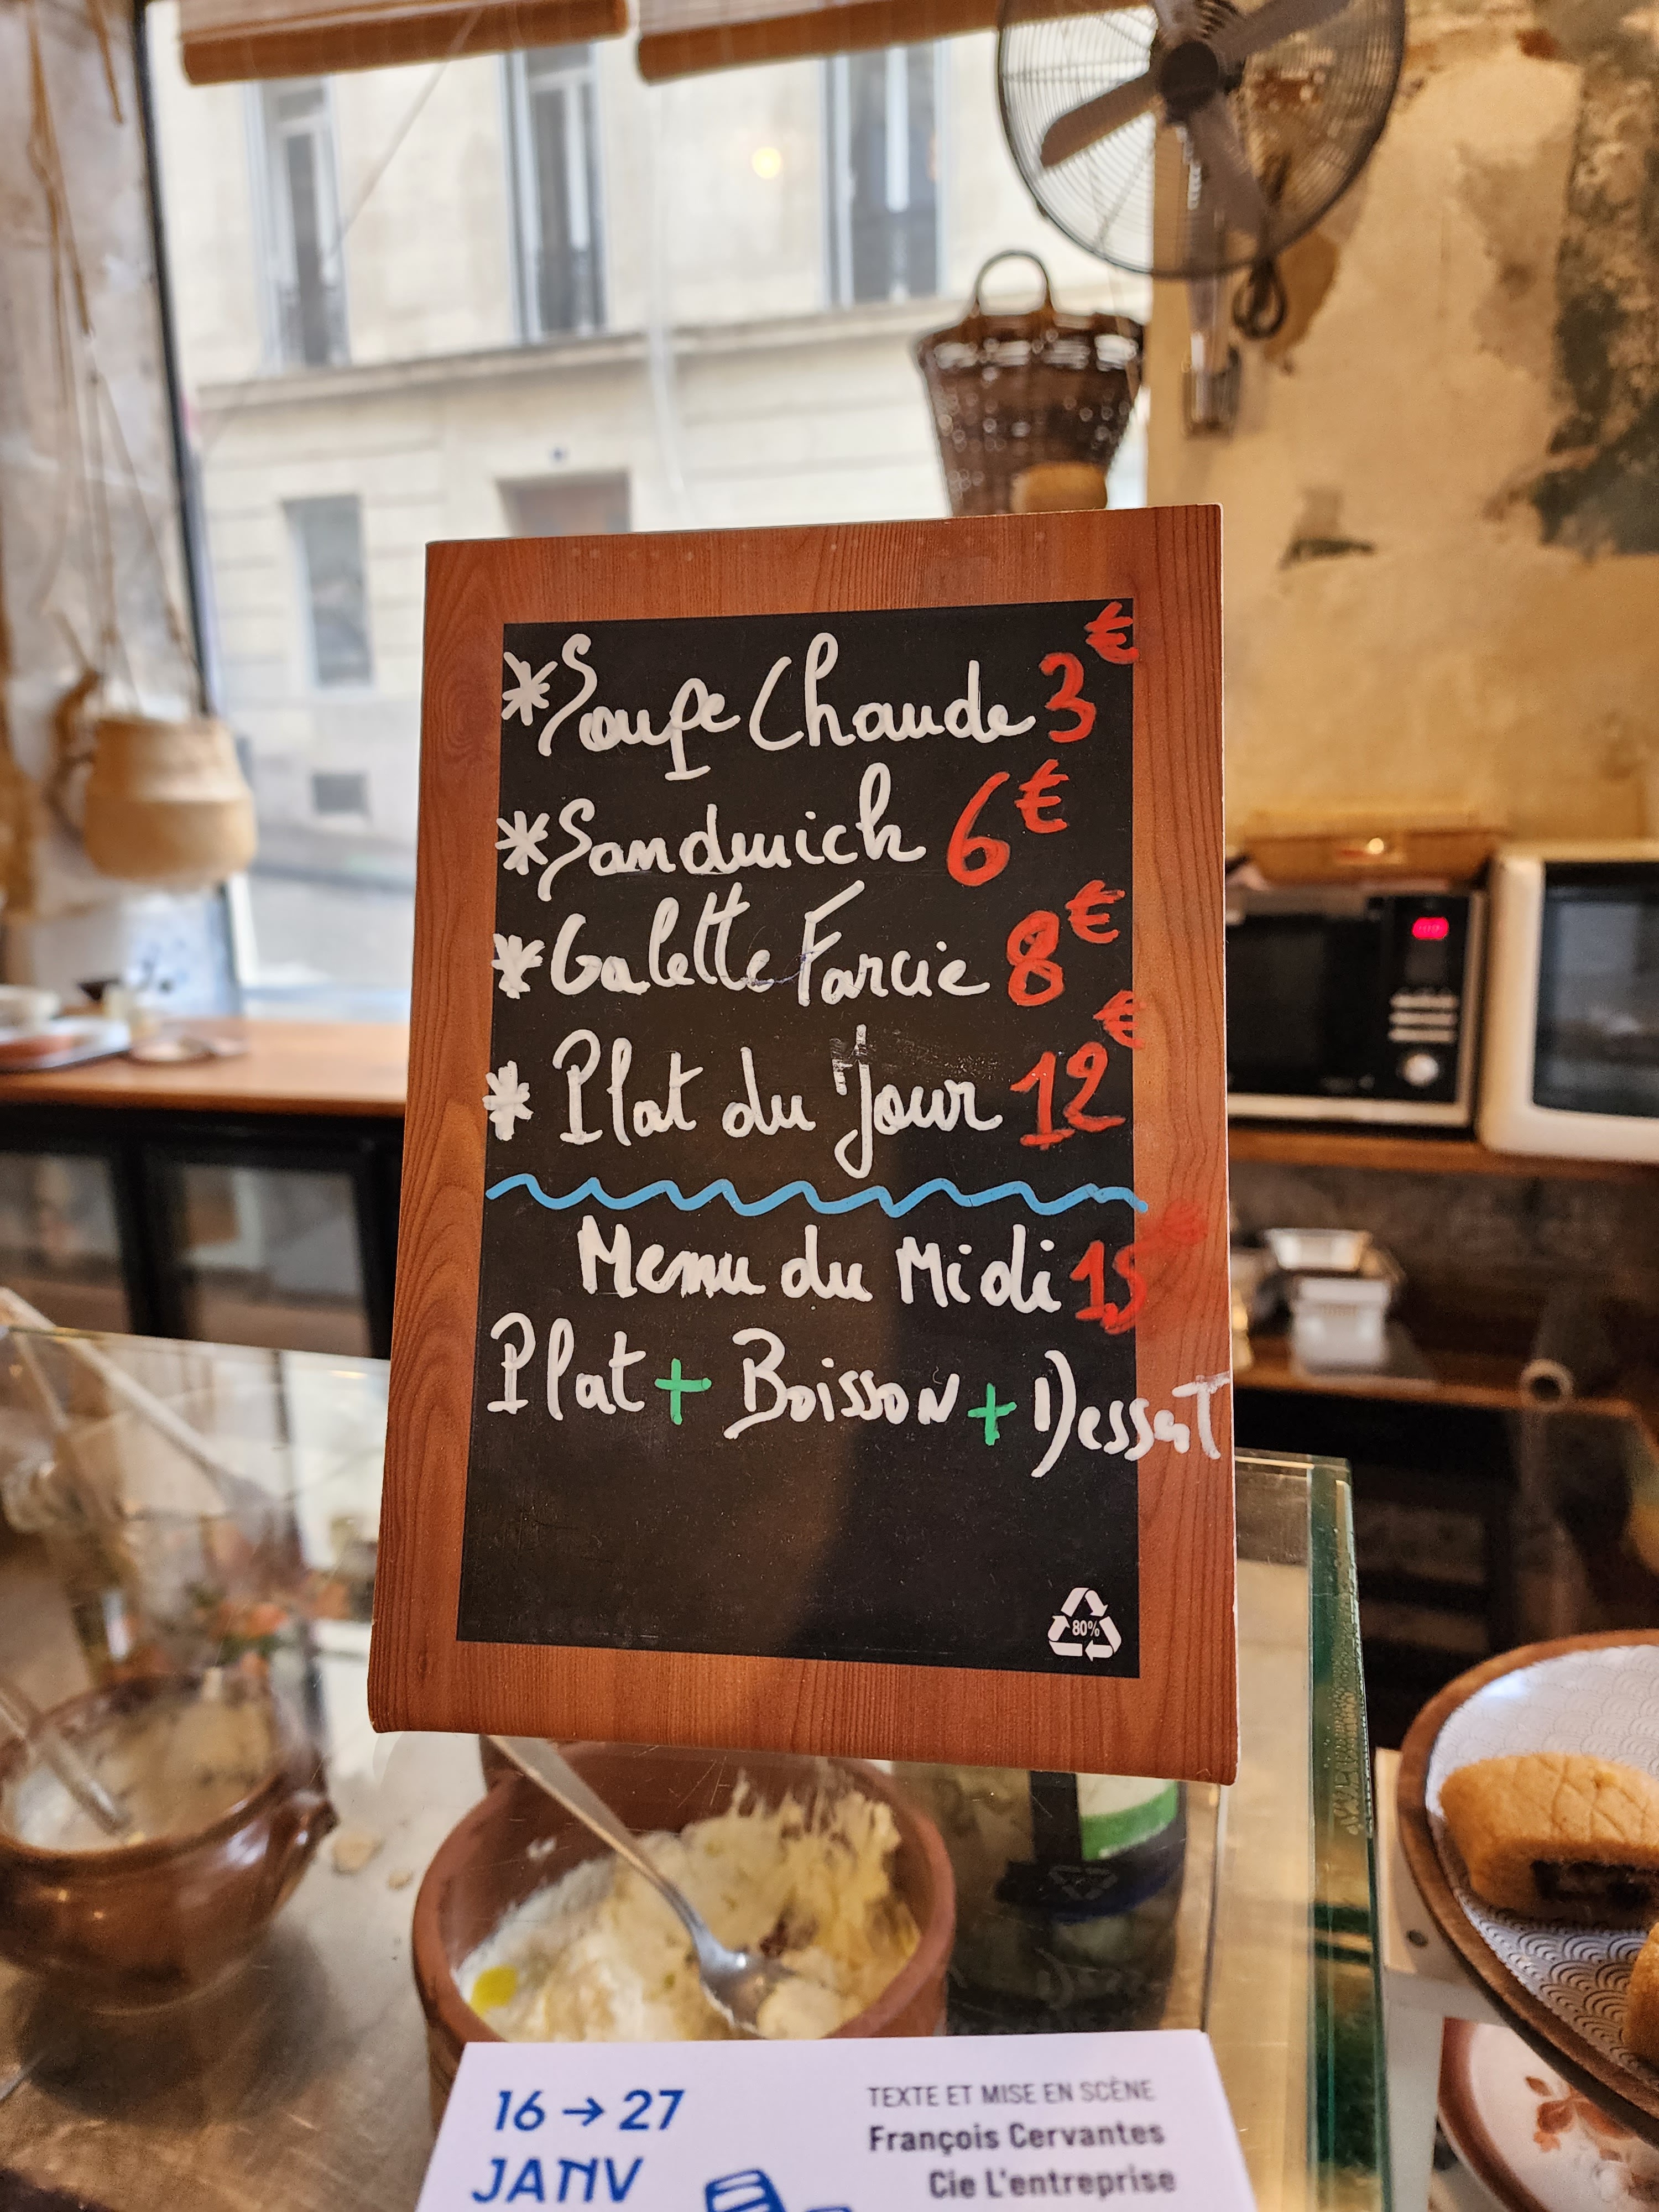 *Soupe Chaude 3€
*Sandwich 6€
*Galette Farcie 8€
* Plat du jour 12€
Menu du Midi 15€
Plat + Boisson + Dessert
80%
16 → 27
JANV
TEXTE ET MISE EN SCÈNE
François Cervantes
Cie L'entreprise